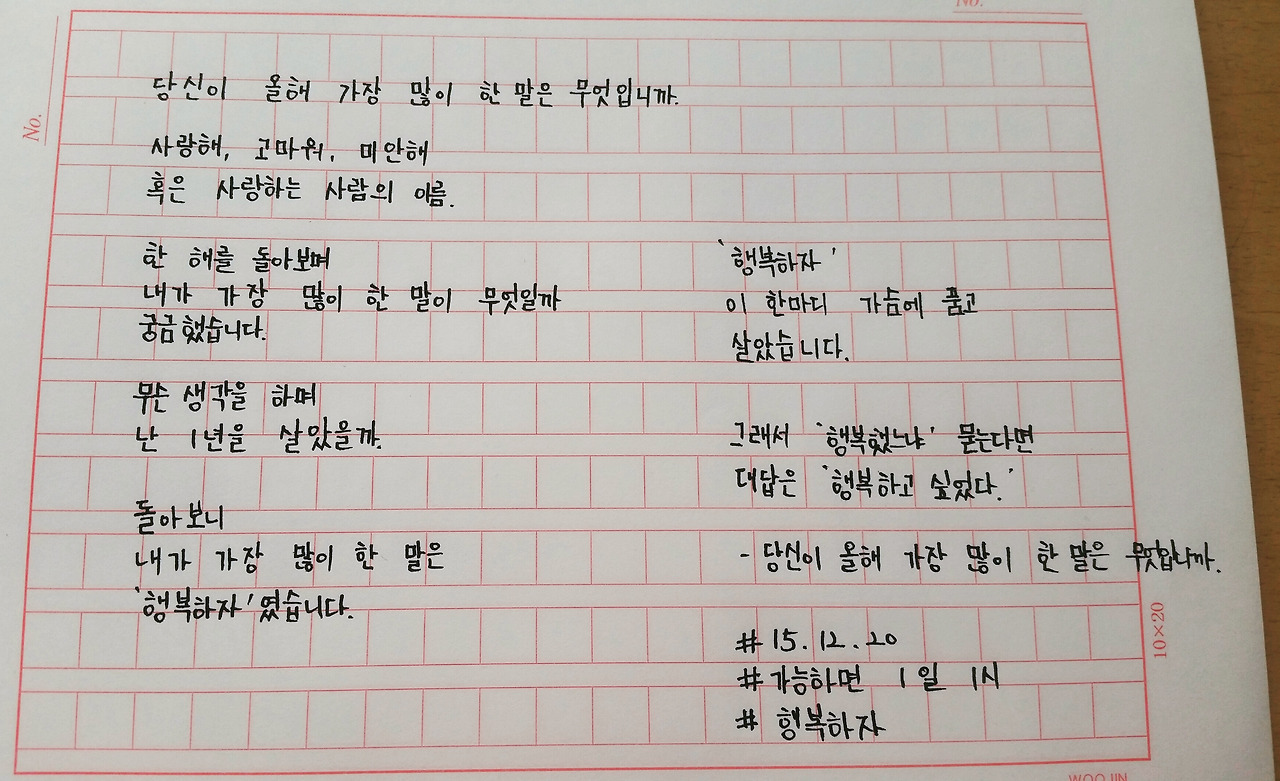 No.
No.
당신이 올해 가장 많이 한 말은 무엇입니까.
사랑해, 고마워, 미안해
혹은 사랑하는 사람의 이름.
한 해를 돌아보며
내가 가장 많이 한 말이 무엇일까
궁금했습니다.
무슨 생각을 하며
난 1년을 살았을까.
돌아보니
내가 가장 많이 한 말은
'행복하자'였습니다.
'행복하자'
이 한마디 가슴에 품고
살았습니다.
그래서 '행복했느냐' 묻는다면
대답은 '행복하고 싶었다.'
- 당신이 올해 가장 많이 한 말은 무엇입니까.
# 15.12.20
# 가능하면 1일 1시
# 행복하자
10×20
WOOJIN